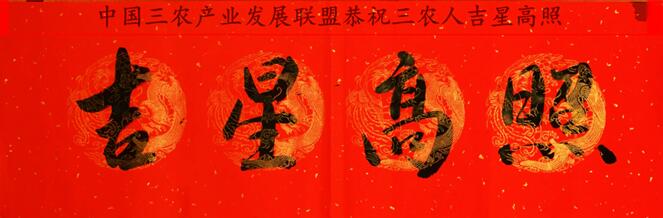 中国三农产业发展联盟恭祝三农人吉星高照
吉星高照